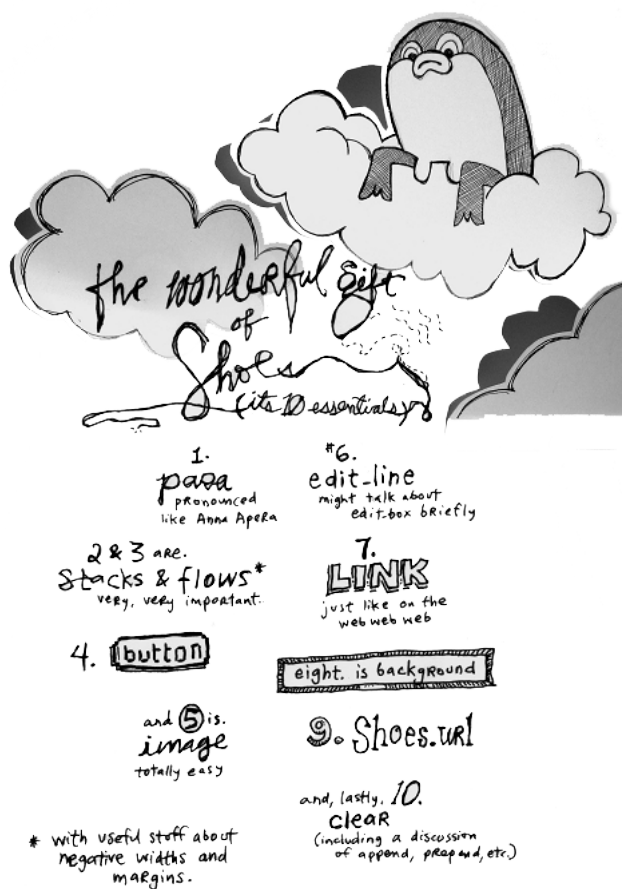 the wonderful gift
of
Shoes
(its 10 essentials)
1.
para
pronounced
like Anna Apera
2 & 3 are.
stacks & flows*
very, very important.
4. button
and 5 is.
image
totally easy
* with useful stuff about
negative widths and
margins.
#6.
edit_line
might talk about
edit-box briefly
7.
LINK
just like on the
web web web
eight. is background
9. Shoes.url
and, lastly, 10.
clear
(including a discussion
of append, prepend, etc.)